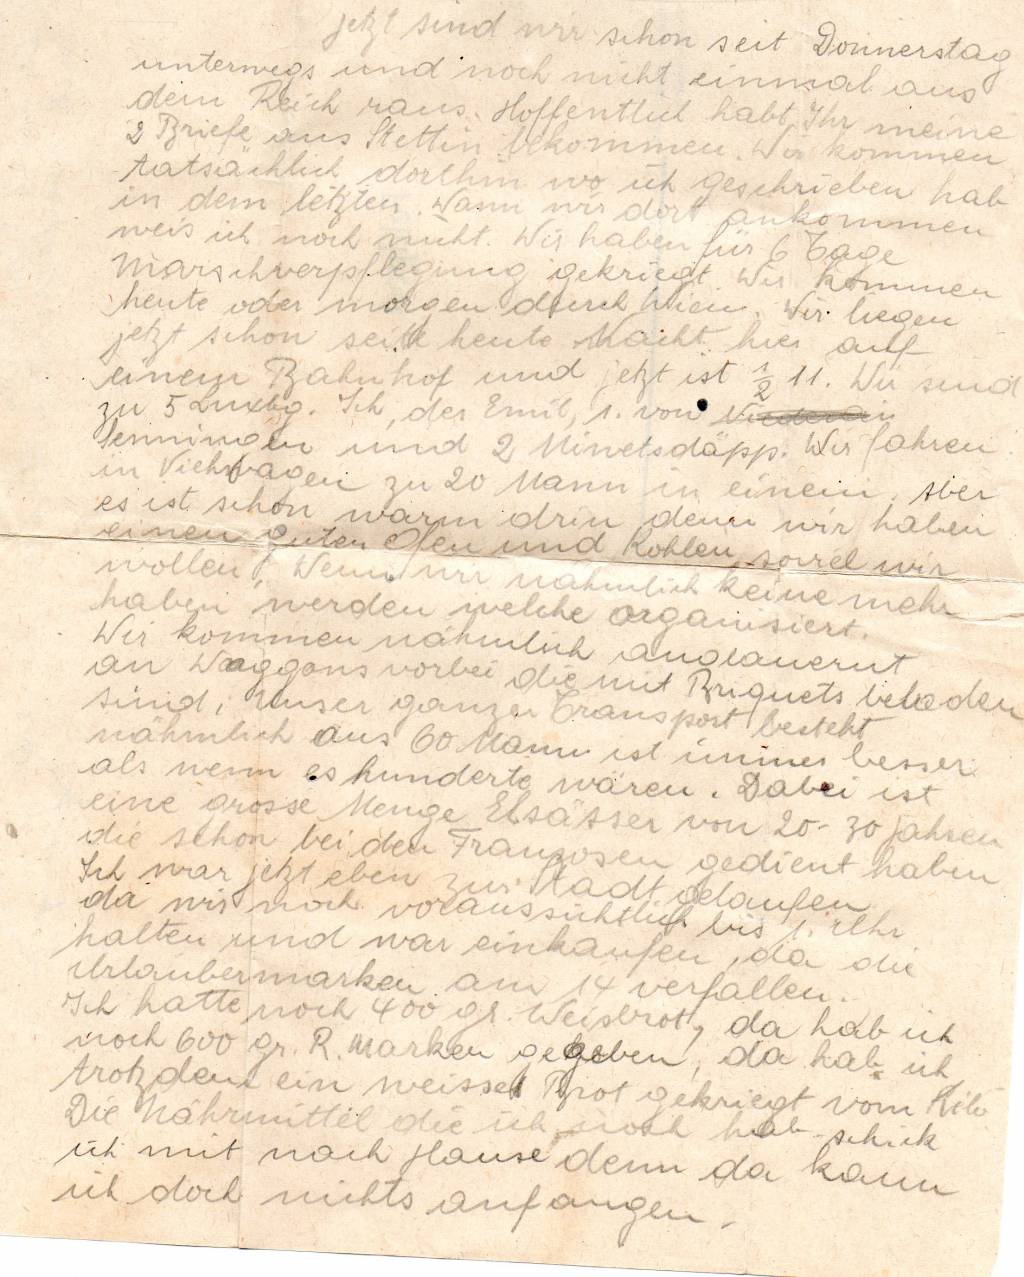 jetzt sind wir schon seit Donnerstag
unterwegs und noch nicht einmal aus
dem Reich raus. Hoffentlich habt Ihr meine
2 Briefe aus Stettin bekommen. Wir kommen
tatsächlich dorthin wo ich geschrieben hab
in dem letzten. Wann wir dort ankommen
weis ich noch nicht. Wir haben für 6 Tage
Marschverpflegung gekriegt. Wir kommen
heute oder morgen durch Wien. Wir liegen
jetzt schon seit heute Nacht hier auf
einem Bahnhof und jetzt ist 1/2 11. Wir sind
zu 5 Luxbg. Ich, der Emil, 1. von
Senningen und 2 Minetsdäpp. Wir fahren
in Viehwagen zu 20 Mann in einem. Aber
es ist schön warm drin denn wir haben
einen guten Ofen und Kohlen soviel wir
wollen. Wenn wir nähmlich keine mehr
haben werden welche organisiert.
Wir kommen nähmlich andauernt
an Waggons vorbei die mit Briquets beladen
sind, Unser ganzer Transport besteht
nähmlich aus 60 Mann ist immer besser
als wenn es hunderte wären. Dabei ist
eine grosse Menge Elsässer von 20-30 Jahren
die schon bei den Franzosen gedient haben
Ich war jetzt eben zur Stadt gelaufen
da wir noch voraussichtlich bis 1. Uhr
halten und war einkaufen, da die
Urlaubermarken am 14 verfallen.
Ich hatte noch 400 gr. Weisbrot, da hab ich
noch 600 gr. R. Marken gegeben, da hab ich
trotzdem ein weisses Brot gekriegt vom Kilo
Die Nährmittel die ich noch hab schick
ich mit nach Hause denn da kann
ich doch nichts anfangen.